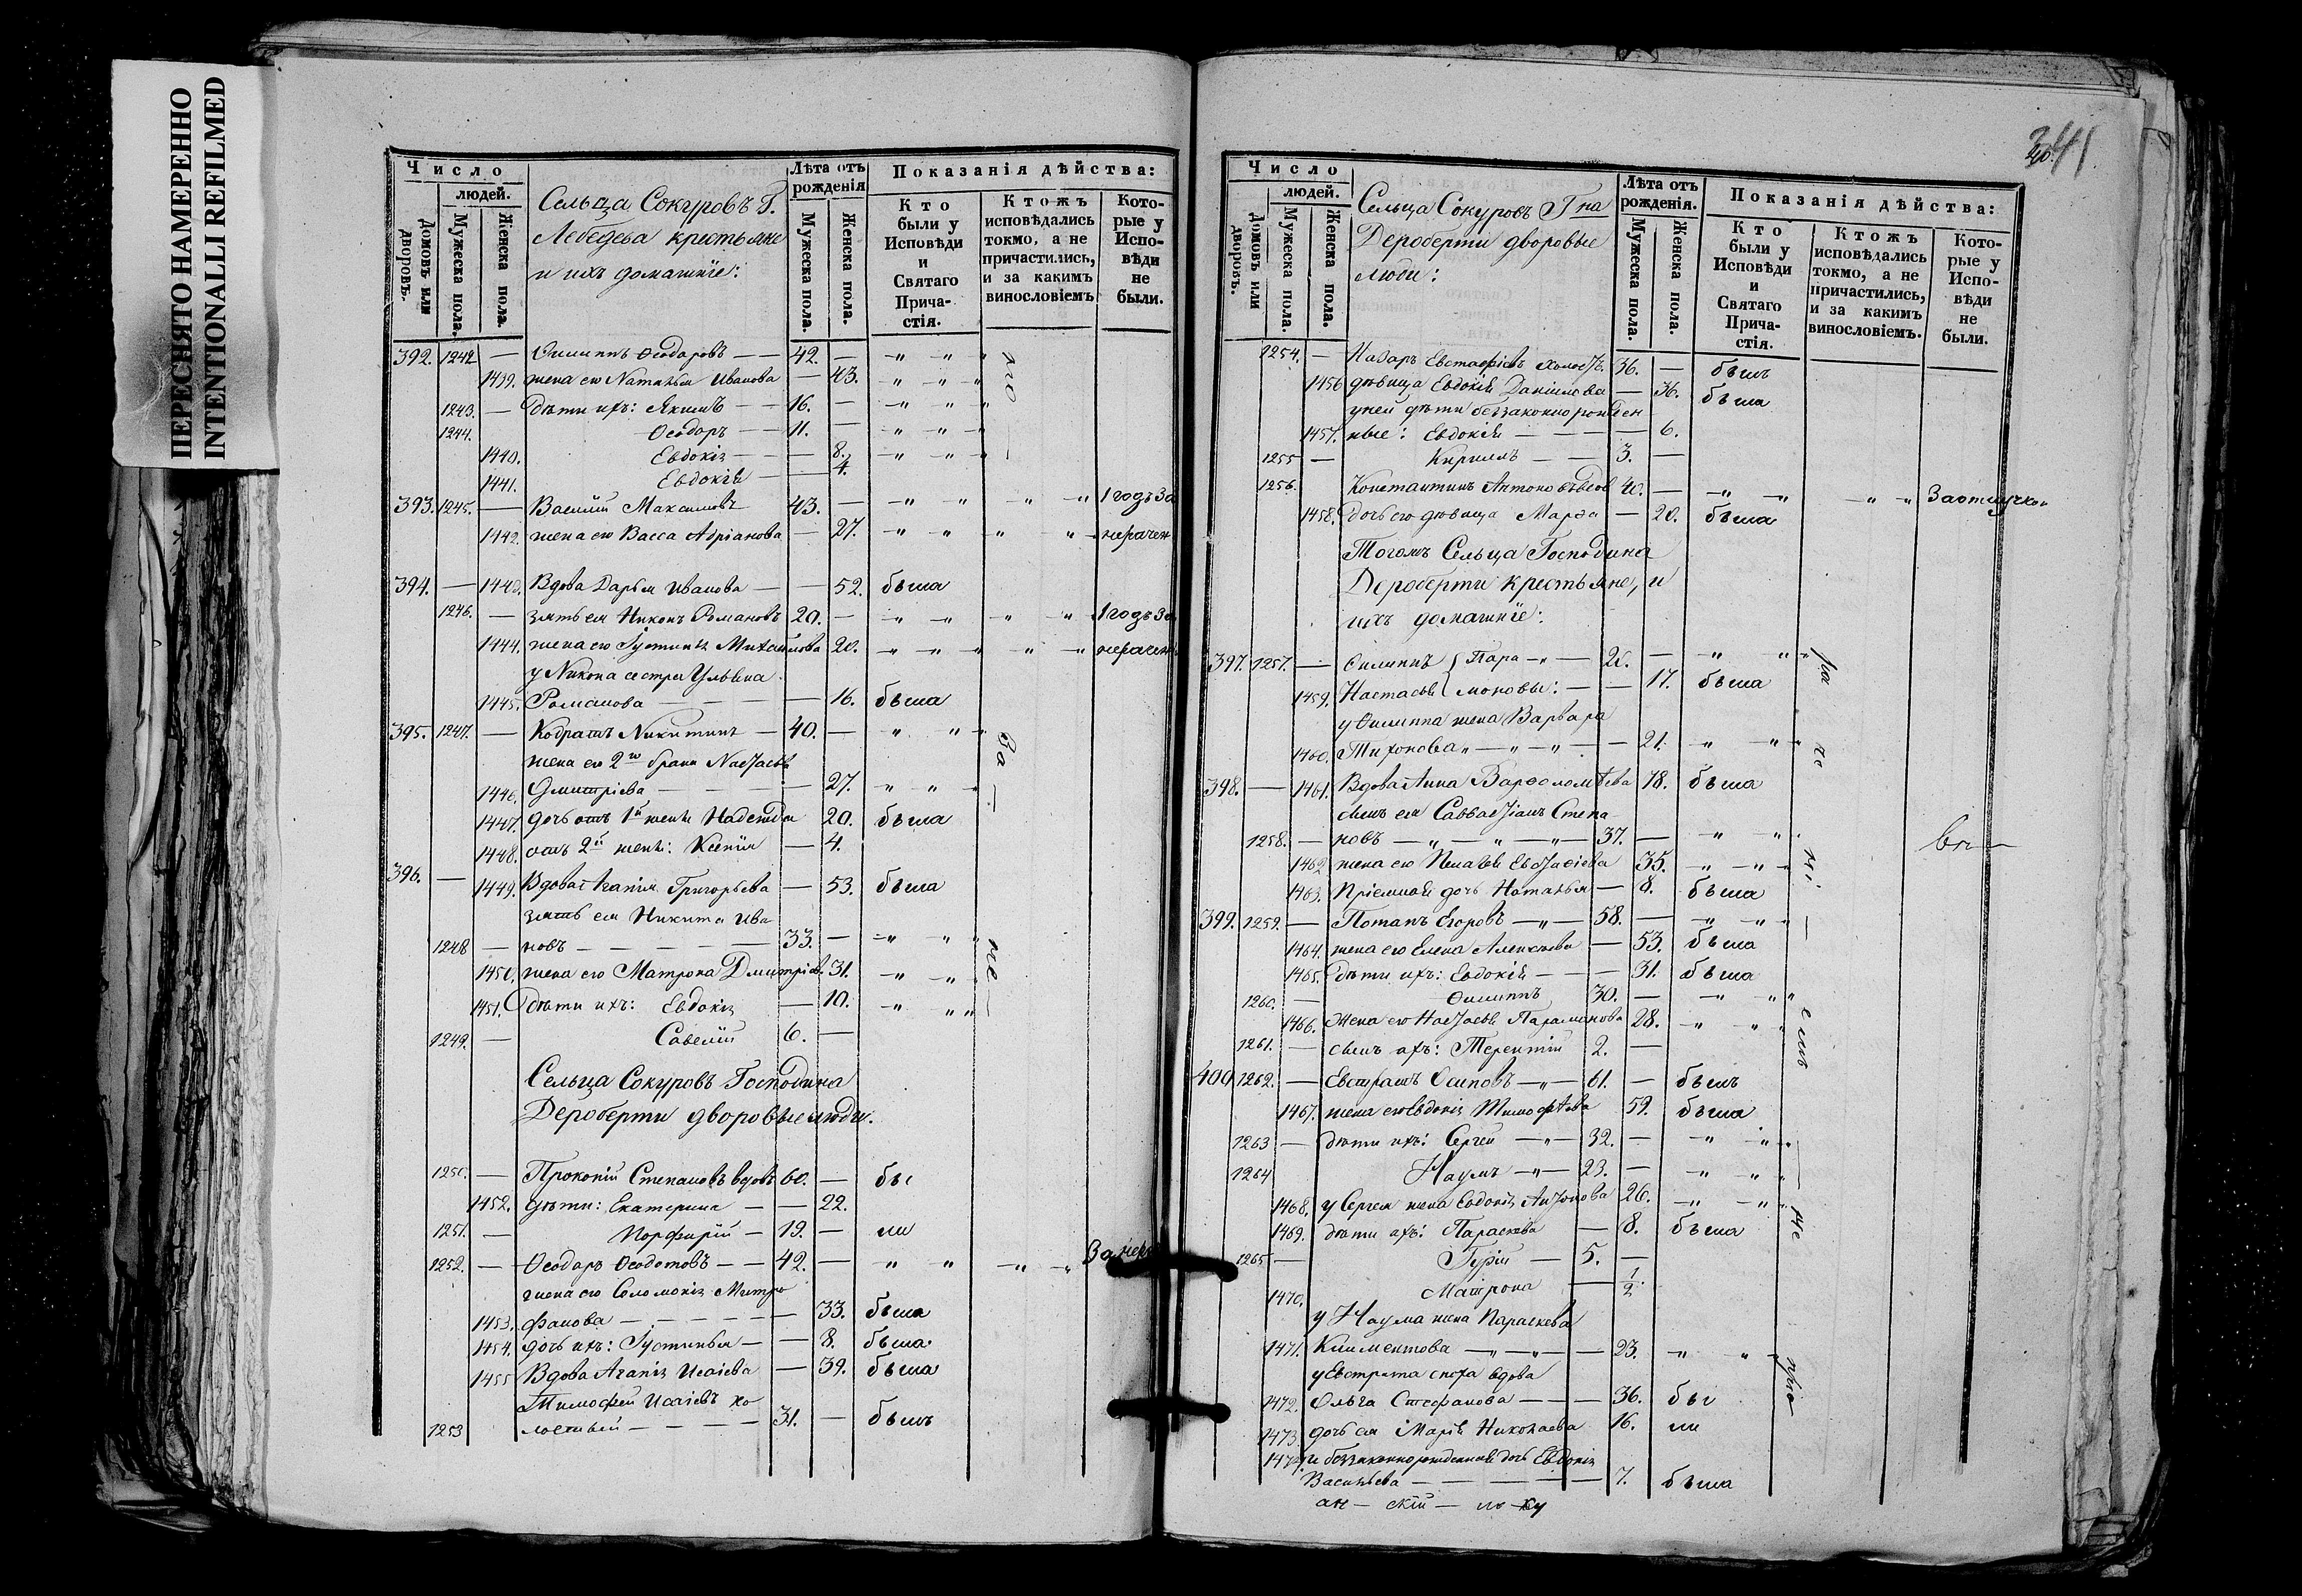 ПЕРЕСНЯТО НАМЕРЕННО
INTENTIONALLI REFILMED
Число
людей.
Домовъ или дворовъ.
Мужеска пола.
Женска пола.
Сельца Сокуровъ Г.
Лебедева крестьяне
и ихъ домашніе:
Лѣта отъ рожденія
Мужеска пола.
Женска пола.
Показанія дѣйства:
Кто были у Исповѣди и Святаго Прича-стія.
Ктожъ исповѣдались токмо, а не причастились, и за какимъ винословіемъ
Кото-рые у Испо-вѣди не были.
392. 1242. — Филиппъ Ѳеодоровъ — — 42. —
1439. жена его Наталья Иванова — 43.
1243. — Дѣти ихъ: Якимъ — — 16. —
1244. Ѳеодоръ — — 11. —
1440. Евдокія — — — 8.
1441. Евдокія — — 4.
393. 1245. — Василій Максимовъ 43. — 1 годъ За
1442. жена его Васса Адріанова — 27. нерачен
394. — 1443. Вдова Дарья Иванова — — 52. была
1246. — зять ея Никонъ Романовъ 20. — 1 годъ За
1444. жена его Іустинія Михайлова 20. нерачен
у Никона сестра Ульяна
1445. Романова — — — — 16. была
395. 1247. — Кодратъ Никитинъ — 40. —
жена его 2го брака Настасья
1446. Дмитріева — — — — 27.
1447. дочь отъ 1й жены Надежда 20. была
1448. отъ 2й жены: Ксенія — 4.
396. — 1449. Вдова Агапія Григорьева — 53. была
зять ея Никита Ива
1248 — новъ — — — — — 33. —
1450. жена его Матрона Дмитріев. 31.
1451. Дѣти ихъ: Евдокія — 10.
1249. — Савелій 6. —
Сельца Сокуровъ Господина
Дероберти дворовые люди.
1250. — Прокопій Степановъ вдовъ 60. — бы
1452. дѣти: Екатерина — — 22.
1251. — Порфирій — 19. — ли
1252. — Ѳеодоръ Ѳеодотовъ — — 42. — За нера
жена его Соломонія Митро
1453. фанова — — — — — 33. была
1454. дочь ихъ: Іустинья — — 8. была
1455 Вдова Агапія Исаіева — 39. была
Тимофей Исаіевъ хо
1253 лостый — — — — 31. — былъ
341
Число
людей.
Домовъ или дворовъ.
Мужеска пола.
Женска пола.
Сельца Сокуровъ Гна
Дероберти дворовые
люди:
Лѣта отъ рожденія.
Мужеска пола.
Женска пола.
Показанія дѣйства:
Кто были у Исповѣди и Святаго Прича-стія.
Ктожъ исповѣдались токмо, а не причастились, и за какимъ винословіемъ.
Кото-рые у Испо-вѣди не были.
1254. — Назаръ Евстафіевъ холостъ 36. — былъ
1456 дѣвица Евдокія Даніилова — 36. была
у ней дѣти беззаконнорожден
1457. ные: Евдокія — — — — 6.
1255 — Кириллъ — — 3. —
1256. Константинъ Антоновъ вдов 40. — За отлучкою
1458. дочь его дѣвица Марѳа — 20. была
Тогожъ Сельца Господина
Дероберти крестьяне, и
ихъ домашніе:
397. 1257. — Филиппъ { Пара — — 20. —
1459. Настасья { моновы: — — 17. была
у Филиппа жена Варвара
1460. Тихонова — — — — 21.
398. — 1461. Вдова Анна Варѳоломѣева 78. была
сынъ ея Савватіанъ Степа
1258. — новъ — — — — 37. —
1462 жена его Пелагія Евстафіева 35.
1463. Пріемная дочь Наталья — 8. была
399. 1259. — Потапъ Егоровъ — — 58. —
1464. жена его Елена Алексѣева — 53. была
1465. Дѣти ихъ: Евдокія — — — 31. была
1260. — Филиппъ 30. —
1466. Жена его Настасья Парамонова 28.
1261. — сынъ ихъ: Терентій 2. —
400 1262. — Евстратъ Осиповъ — — 61. — былъ
1467. жена его Евдокія Тимофѣева 59. была
1263 — дѣти ихъ: Сергѣй — — 32. —
1264 Наумъ — — 23. —
1468. у Сергея жена Евдокія Антонова 26.
1469. дѣти ихъ: Параскева — 8. была
1265 — Гурій — 5. —
1470. Матрона — 1/2
у Наума жена Параскева
1471. Климентова — — — — 23.
у Евстрата сноха вдова
1472. Ольга Стефанова — — — 36. бы
1473. дочь ея Марія Николаева 16. ли
1474. и беззаконнорожденная дочь Евдокія
Васильева — — — — — 7. была
ан — скій — по ку